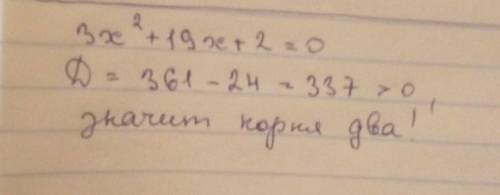 3x² + 19x + 2 = 0
D = 361 - 24 = 337 > 0,
значит корня два!